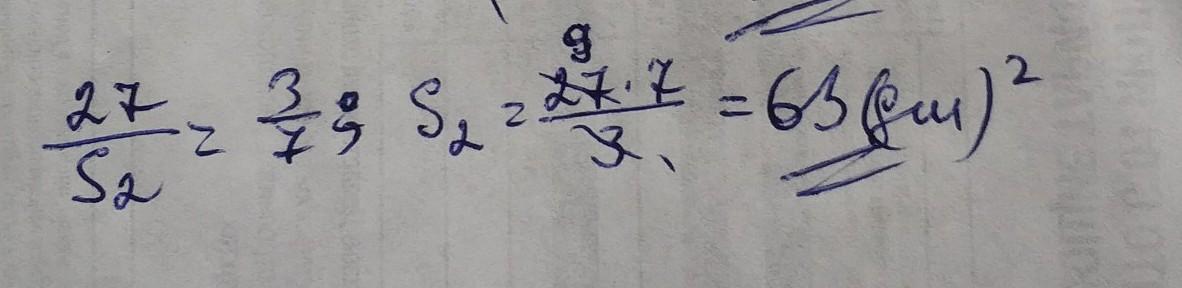 27/S₂ = 3/7; S₂ = 27·7/3 = 63 (дм)²
9